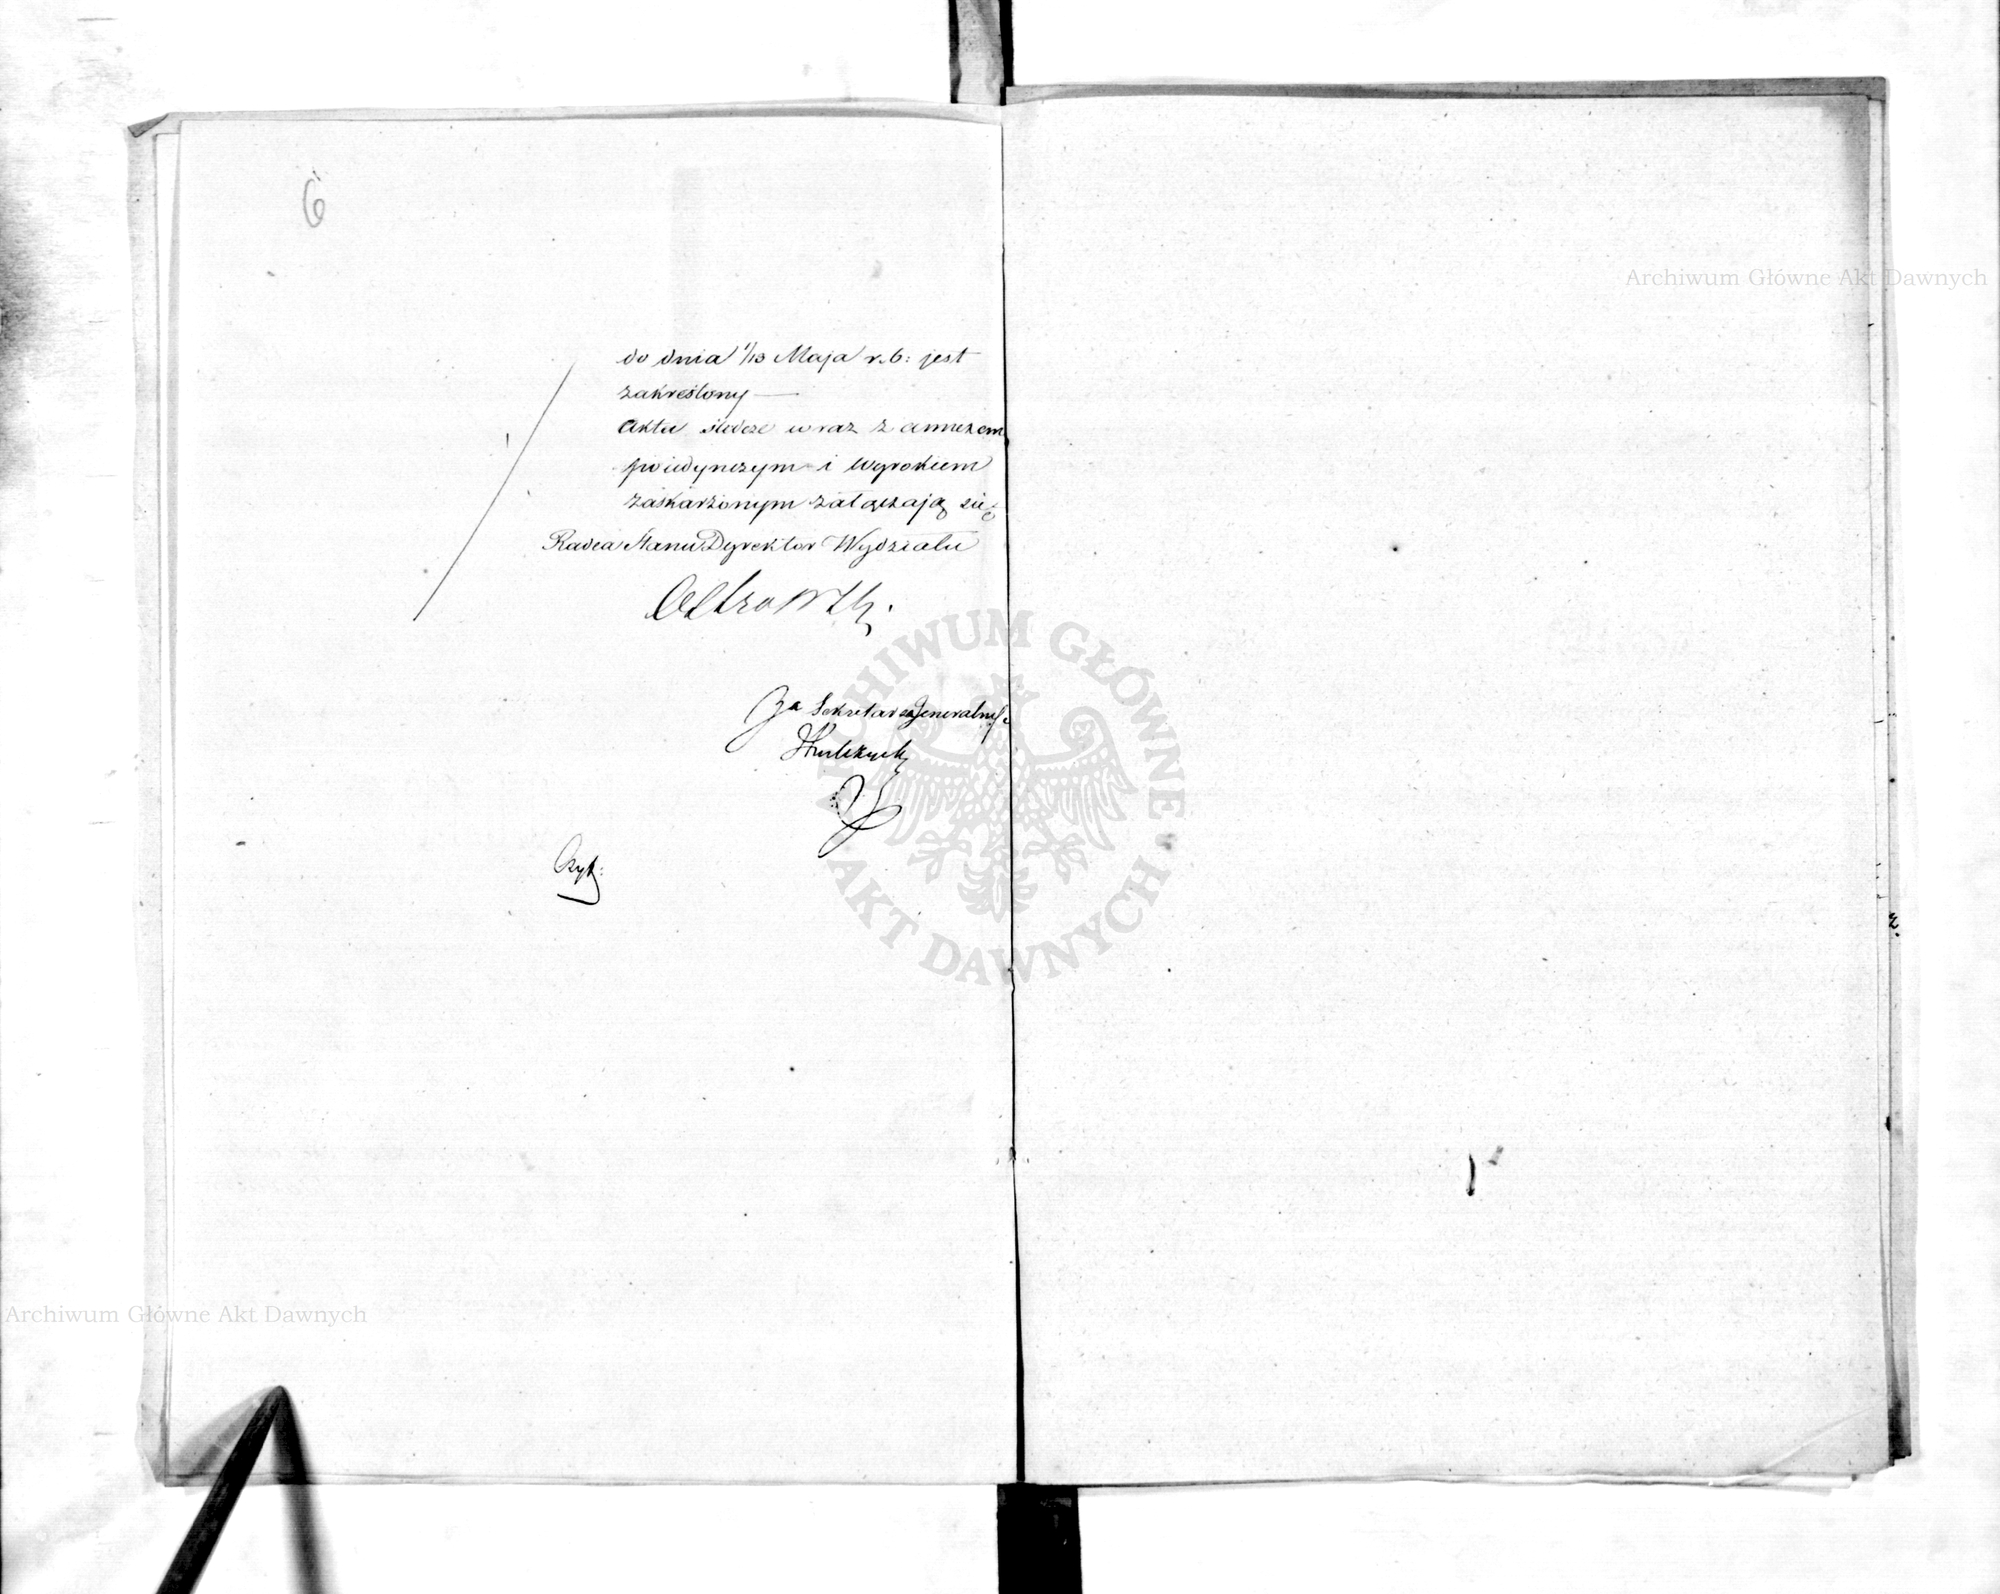 6
do dnia 1/13 Maja r. b: jest
zakreślony —
Akta śledcze wraz z annexem
poiedynczym i wyrokiem
zaskarżonym załączają się
Radca Stanu Dyrektor Wydziału
Za Sekretarza Generalnego
ARCHIWUM GŁÓWNE AKT DAWNYCH
Archiwum Główne Akt Dawnych
Archiwum Główne Akt Dawnych